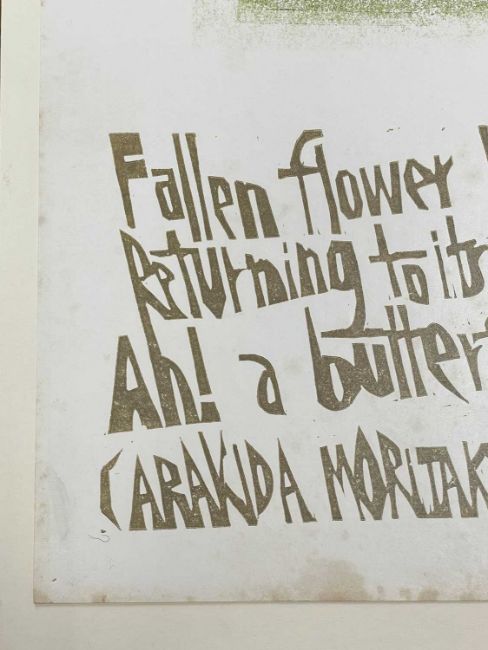 Fallen flower
Returning to its
Ah! a butterf
(ARAKIDA MORITAK